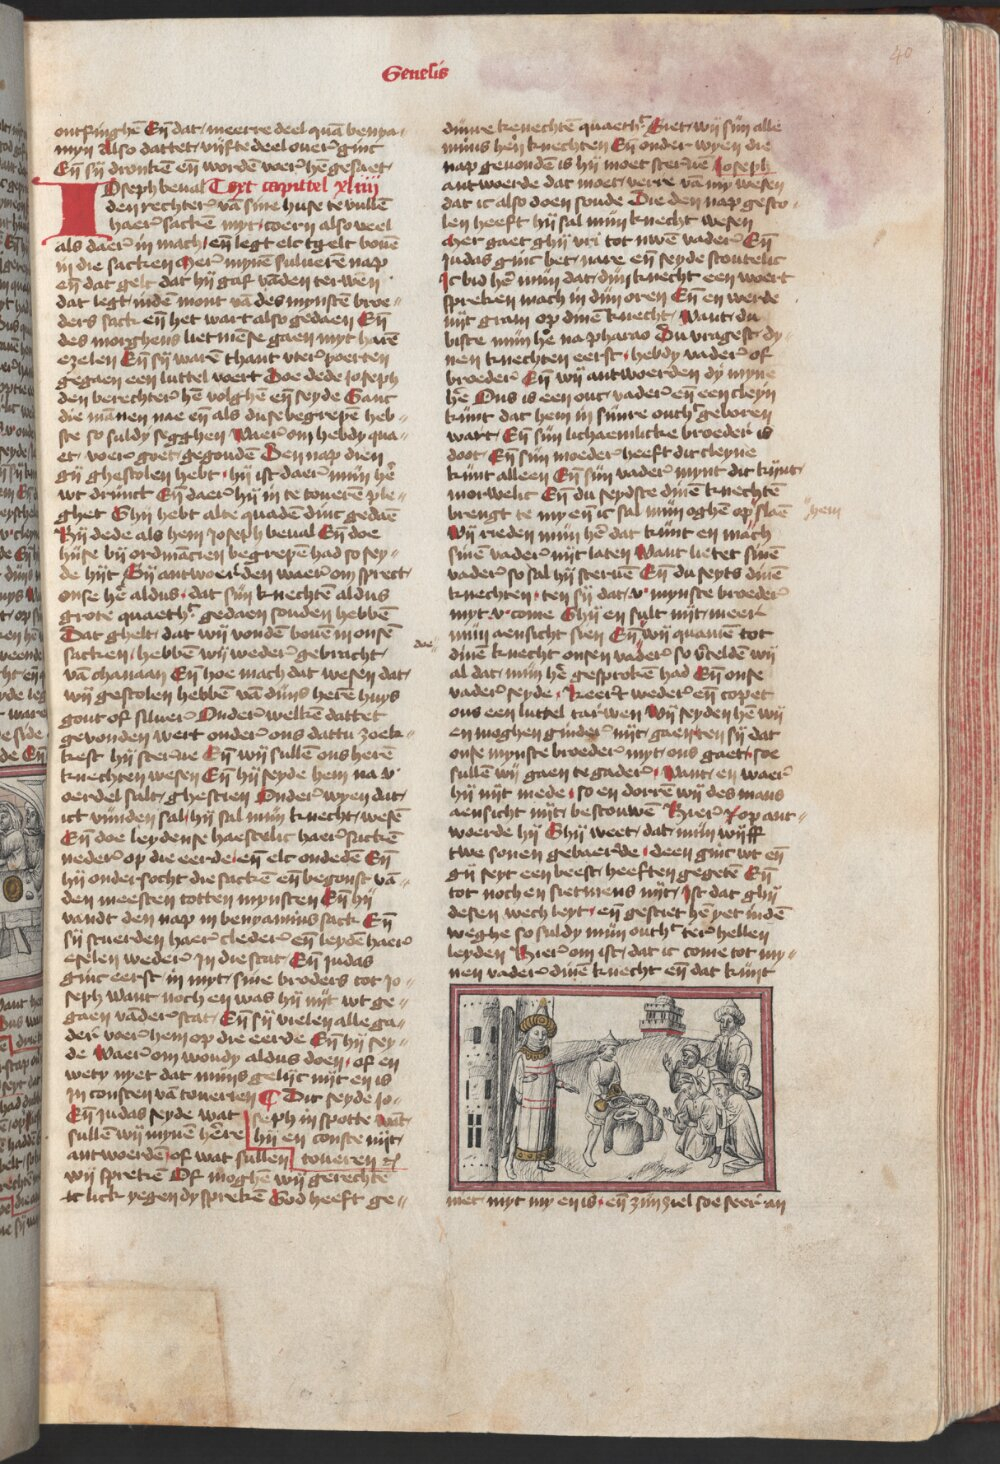 Genesis
40
ontfinghē Eñ dat meerre deel quā benya-
myn Also dattet vijfte deel over ginc
Eñ sy dronkē eñ wordē voer hē gesaet
IOseph beval Text capittel xliiii
den rechter vā sine huse te vullē
haer sackē myt coern also veel
als daer in mach eñ legt elc tgelt bovē
in die sacken Mer mynē sulverē nap
eñ dat gelt dat hy gaf vāden terwen
dat legt indē mont vā des mynstē broe-
ders sack eñ het wart also gedaen Eñ
des morghens liet mēse gaen myt harē
ezelen Eñ sy warē thant uter poerten
gegaen een luttel voert Doe dede ioseph
den berechter hē volghē eñ seyde Ganc
die mānen nae eñ als duse begrepē heb-
ste so saldy segghen Waer om hebdy qua-
et voer goet gegoudē Den nap dien
gy ghestolen hebt hy ist daer myn hē
wt drinct Eñ daer hy in te toverē ple-
ghet Ghy hebt alte quadē dinc gedaē
Hy dede als hem ioseph beval Eñ doe
hise by ordinācien begrepē had so sey-
de hijt Sy antwoerden waer om sprect
onse hē aldus dat dyn knechtē aldus
grote quaeth gedaen souden hebbē
Dat ghelt dat wy vondē bovē in onsē
sacken hebbē wy weder gebracht
vā chanaan Eñ hoe mach dat wesen dat
wy gestolen hebbē vā dyns herē huys
gout of silver Onder welkē dattet
gevonden wert onder ons dattu zoek-
kest hy sterve Eñ wy sullē ons herē
knechten wesen Eñ hy seyde hem na v
oerdel salt ghescien Onder wyen dat
ict vinden sal hy sal myn knecht wesē
Eñ doe leydense haestelic haer sackē
neder op die eerde eñ elc ondedē Eñ
hy ondersocht die sackē eñ begonst vā-
den meesten totten mynsten Eñ hy
vandt den nap in benyamins sack Eñ
sy scuerden haer cleder eñ leydē haer
eselen weder in die stat Eñ iudas
ginc eerst in myt sine broders tot io-
seph want noch en was hy nijt wt ge-
gaen vāder stat Eñ sy vielen alle ga-
der voer hem op die eerde Eñ hy sey-
de Waer om woudy aldus doen of en
wety nyet dat myns gelijc nijt en is
in consten vā toverien C Dit seyde io-
Eñ iudas seyde wat seph in spotte wāt
sullē wy mynē hēre hy en conste nijt
antwoerdē of wat sullen toveren
wy sprekē Of moghē wy gerechte
lick yegen dy sprekē God heeft ge-
doe
dinre knechtē quaeth Siet wy syn alle
myns hē knechten Eñ onder wyen die
nap gevondē is hy moet sterve Ioseph
antwoerde dat moet verre vā my wesen
dat ic also doen soude Die den nap gesto-
len heeft hy sal myn knecht wesen
Mer gaet ghy vri tot uwē vader Eñ
iudas ginc bet nare eñ seyde stoutelic
Ic bid hē myn dat dyn knecht een woert
spreken mach in dyn oren Eñ en werde
nijt gram op dinē knecht Want du
biste myn hē na pharao Du vragest dy-
nen knechten eerst hebdy vader of
broeder Eñ wy antwoerden dy myne
hē Ons is een out vader eñ een cleyn
kint dat hem in sinre outh geboren
wart Eñ syn lichaemlicke broeder is
doot Eñ syn moeder heeft dit cleyne
kint alleen Eñ syn vader mynt dit kint
morwelic Eñ du seydste dinē knechtē
brengt te my eñ ic sal myn oghē op slaē hem
Wy rieden myn hē dat kint en mach
sinē vader nijt laten Want lietet sinē
vader so sal hy stervē Eñ du seyts dinē
knechten ten sy dat v mynste broeder
myt v come Ghy en sult nijt meer
myn aensicht sien Eñ wy quamē tot
dinē knecht onsen vader so vteldē wy
al dat myn hē gesprokē had Eñ onse
vader seyde Keert weder eñ copet
ons een luttel tarwen Wy seyden hē wy
en moghen ginder nijt gaen ten sy dat
onse mynste broeder myt ons gaet soe
sullē wy gaen te gader Want en waer
hy nijt mede so en dorrē wy des mans
aensicht nijt bescouwē Hier op ant-
woerde hy Ghy weet dat myn wyff
twe sonen gebaerde deen ginc wt eñ
gy seyt een beest heeften gegetē Eñ
tot noch en sietmens nijt Ist dat ghy
desen wech leyt eñ gesciet hē yet indē
weghe so saldy myn outh ter hellen
leyden Hier om ist dat ic come tot my-
nen vader dinē knecht eñ dat kint
niet myt my en is eñ zyn ziel soe seer an